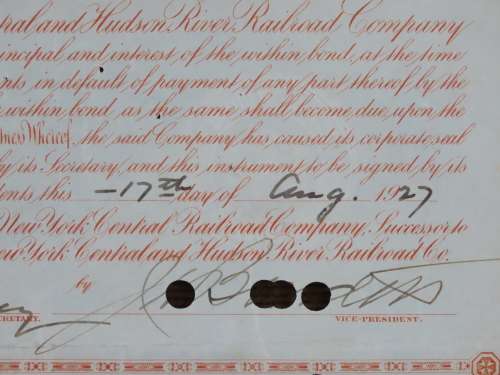 tral and Hudson River Railroad Company
rincipal and interest of the within bond, at the time
nts in default of payment of any part thereof by the
within bond, as the same shall become due, upon the
tness Whereof, the said Company has caused its corporate seal
by its Secretary, and this instrument to be signed by its
dents this -17th day of Aug. 1927
New York Central Railroad Company, Successor to
ew York Central and Hudson River Railroad Co.
by
CRETARY. VICE-PRESIDENT.